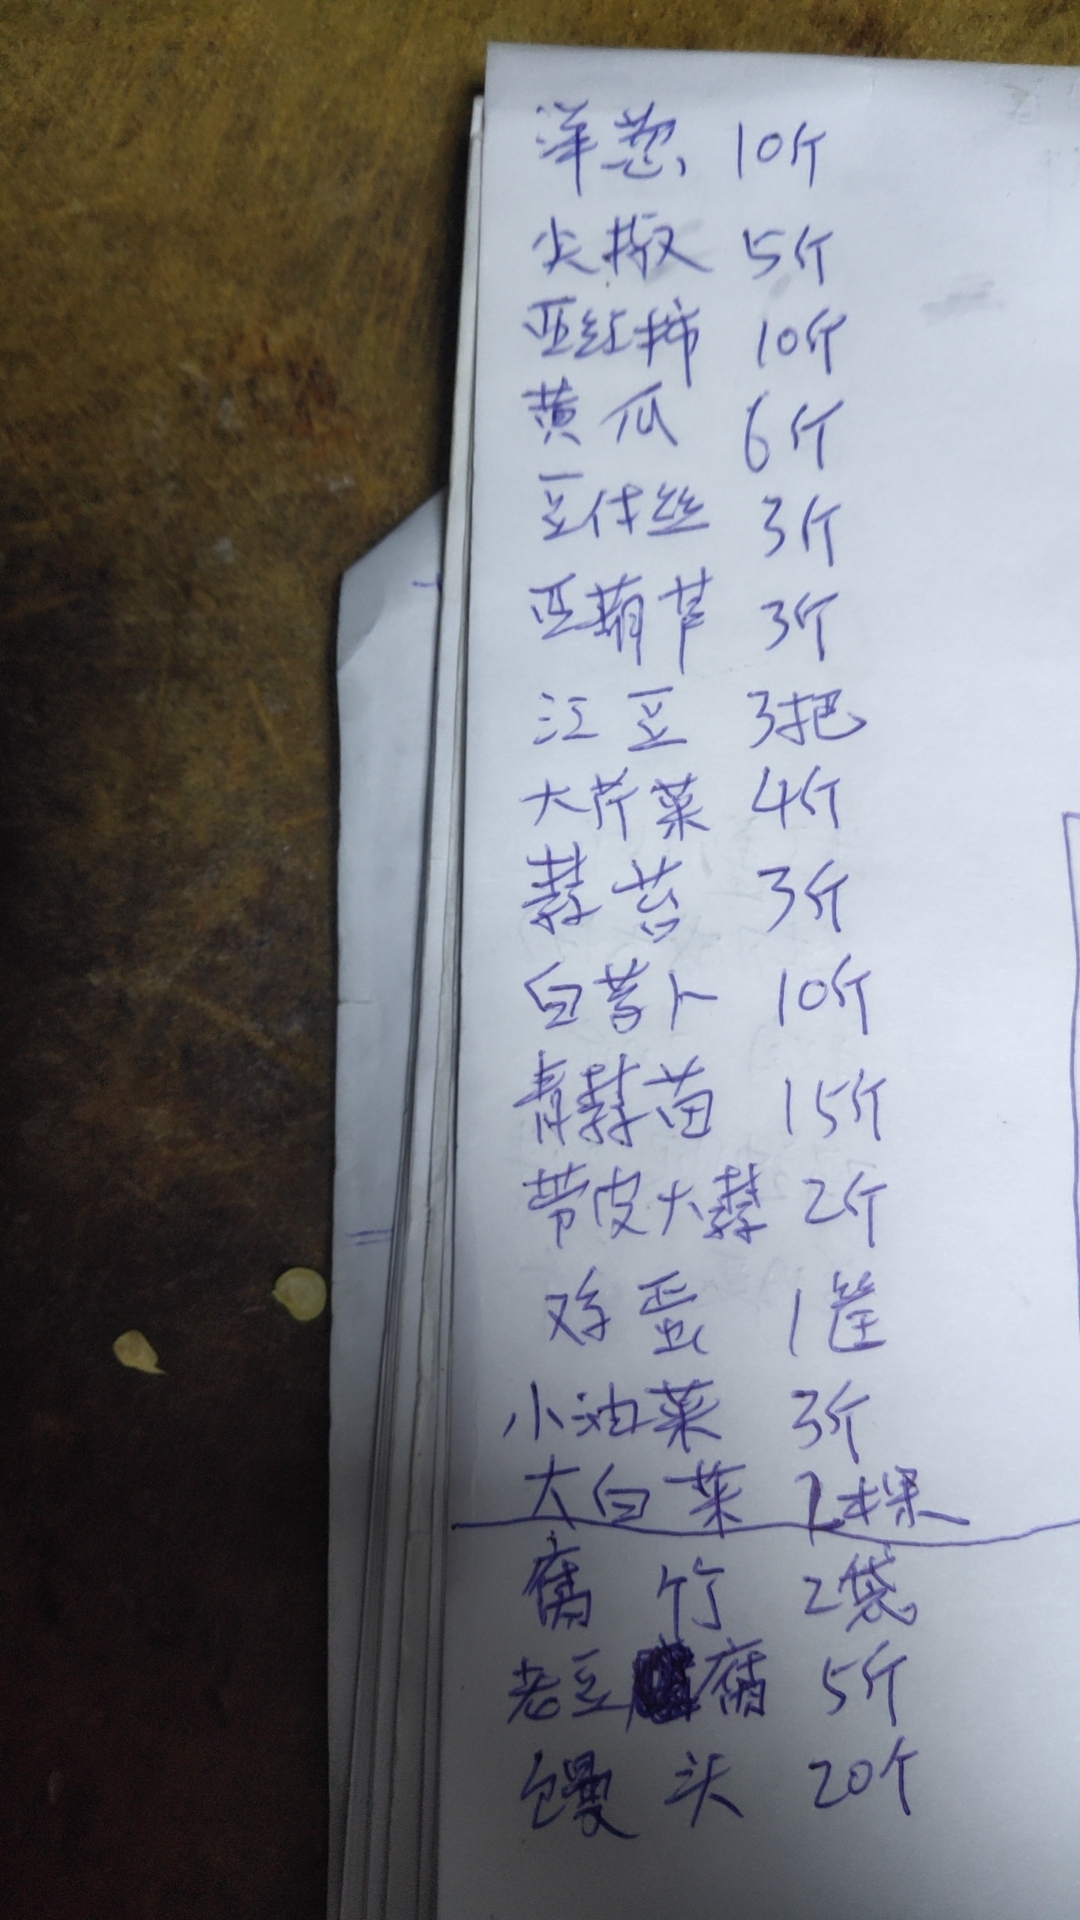 洋葱 10斤
尖椒 5斤
西红柿 10斤
黄瓜 6斤
土豆丝 3斤
西葫芦 3个
江豆 3把
大芹菜 4斤
蒜苔 3斤
白萝卜 10斤
青蒜苗 15斤
带皮大蒜 2斤
鸡蛋 1筐
小油菜 3斤
大白菜 2棵
腐竹 2袋
老豆腐 5斤
馒头 20个